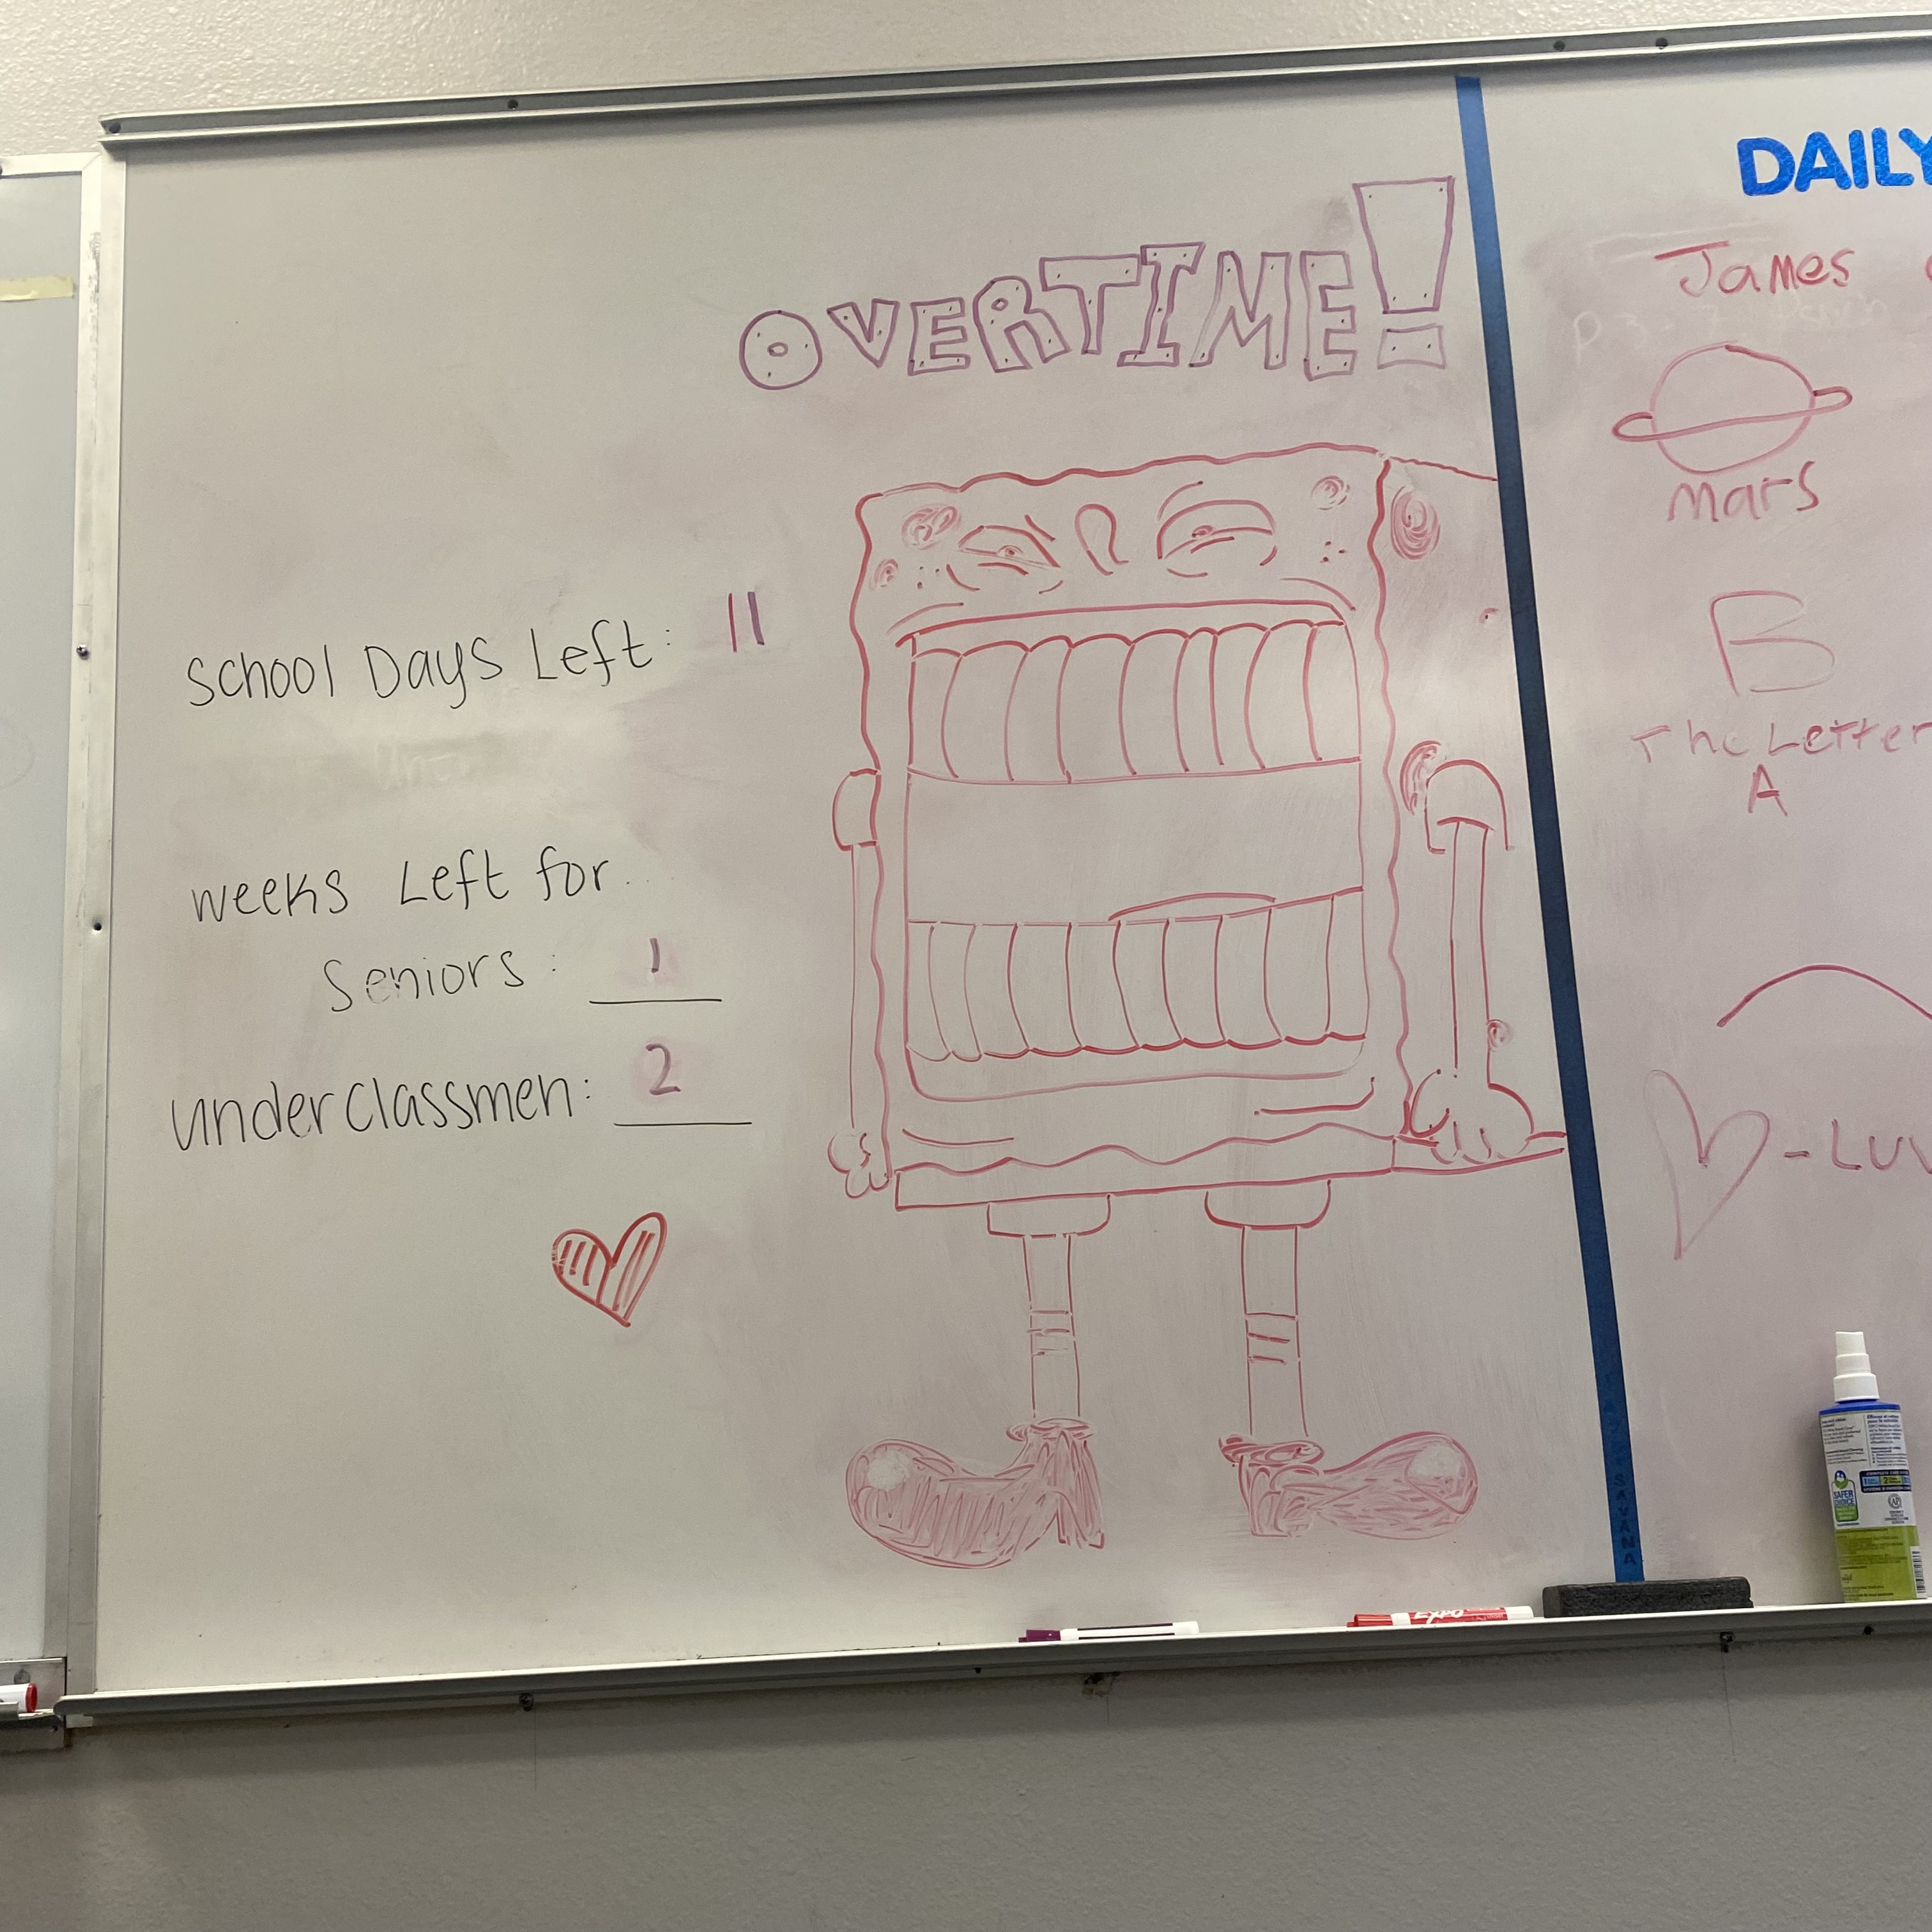 OVERTIME!
School Days Left: 11
weeks Left for
Seniors: 1
underclassmen: 2
DAILY
James
Mars
B
The Letter
A
- LUV
EXPO
SAFER
CHOICE